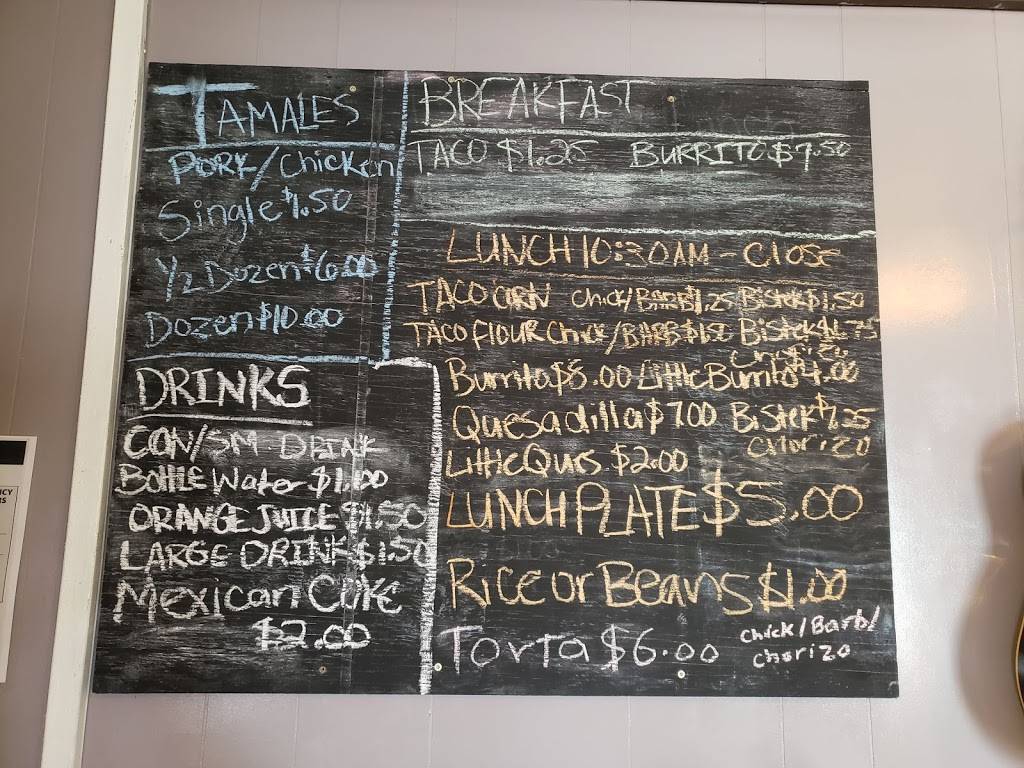 TAMALES
PORK/Chicken
Single $1.50
1/2 Dozen $6.00
Dozen $10.00
DRINKS
CAN/SM. DRINK
BOTTLE Water $1.00
ORANGE JUICE $1.50
LARGE DRINK $1.50
MEXICAN COKE
$2.00
BREAKFAST
TACO $1.25 BURRITO $7.50
LUNCH 10:30AM - CLOSE
TACO CORN Chick/BARB $1.25 Bistek $1.50
TACO FLOUR Chick/BARB $1.50 Bistek $1.75
Chorizo
Burrito $8.00 Little Burrito 4.00
Quesadilla $7.00 Bistek $
Chorizo
Little Ques $2.00
LUNCH PLATE $5.00
Rice or Beans $1.00
Torta $6.00 Chick/Barb/
Chorizo
CY
RS